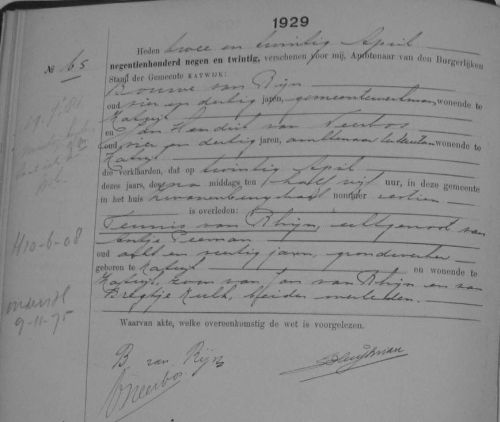 1929
No 65
Heden twee en twintig April
negentienhonderd negen en twintig, verschenen voor mij, Ambtenaar van den Burgerlijken
Stand der Gemeente KATWIJK:
Bouwe van Rijn
oud vier en dertig jaren, gemeentewerkman, wonende te
Katwijk
en Jan Hendrik van Neerbos
oud vier en dertig jaren, ambtenaar ter secretarie wonende te
Katwijk
die verklaarden, dat op twintig April
dezes jaars, des na middags ten half vijf uur, in deze gemeente
in het huis nommer zestien
is overleden:
Teunis van Rhijn, echtgenoot van
Antje
oud acht en jaren, grondwerker
geboren te Katwijk en wonende te
Katwijk, zoon van Jan van Rhijn en van
beiden overleden.
Waarvan akte, welke overeenkomstig de wet is voorgelezen.
B van Rijn
vNeerbos
H10-6-08
9-11-75